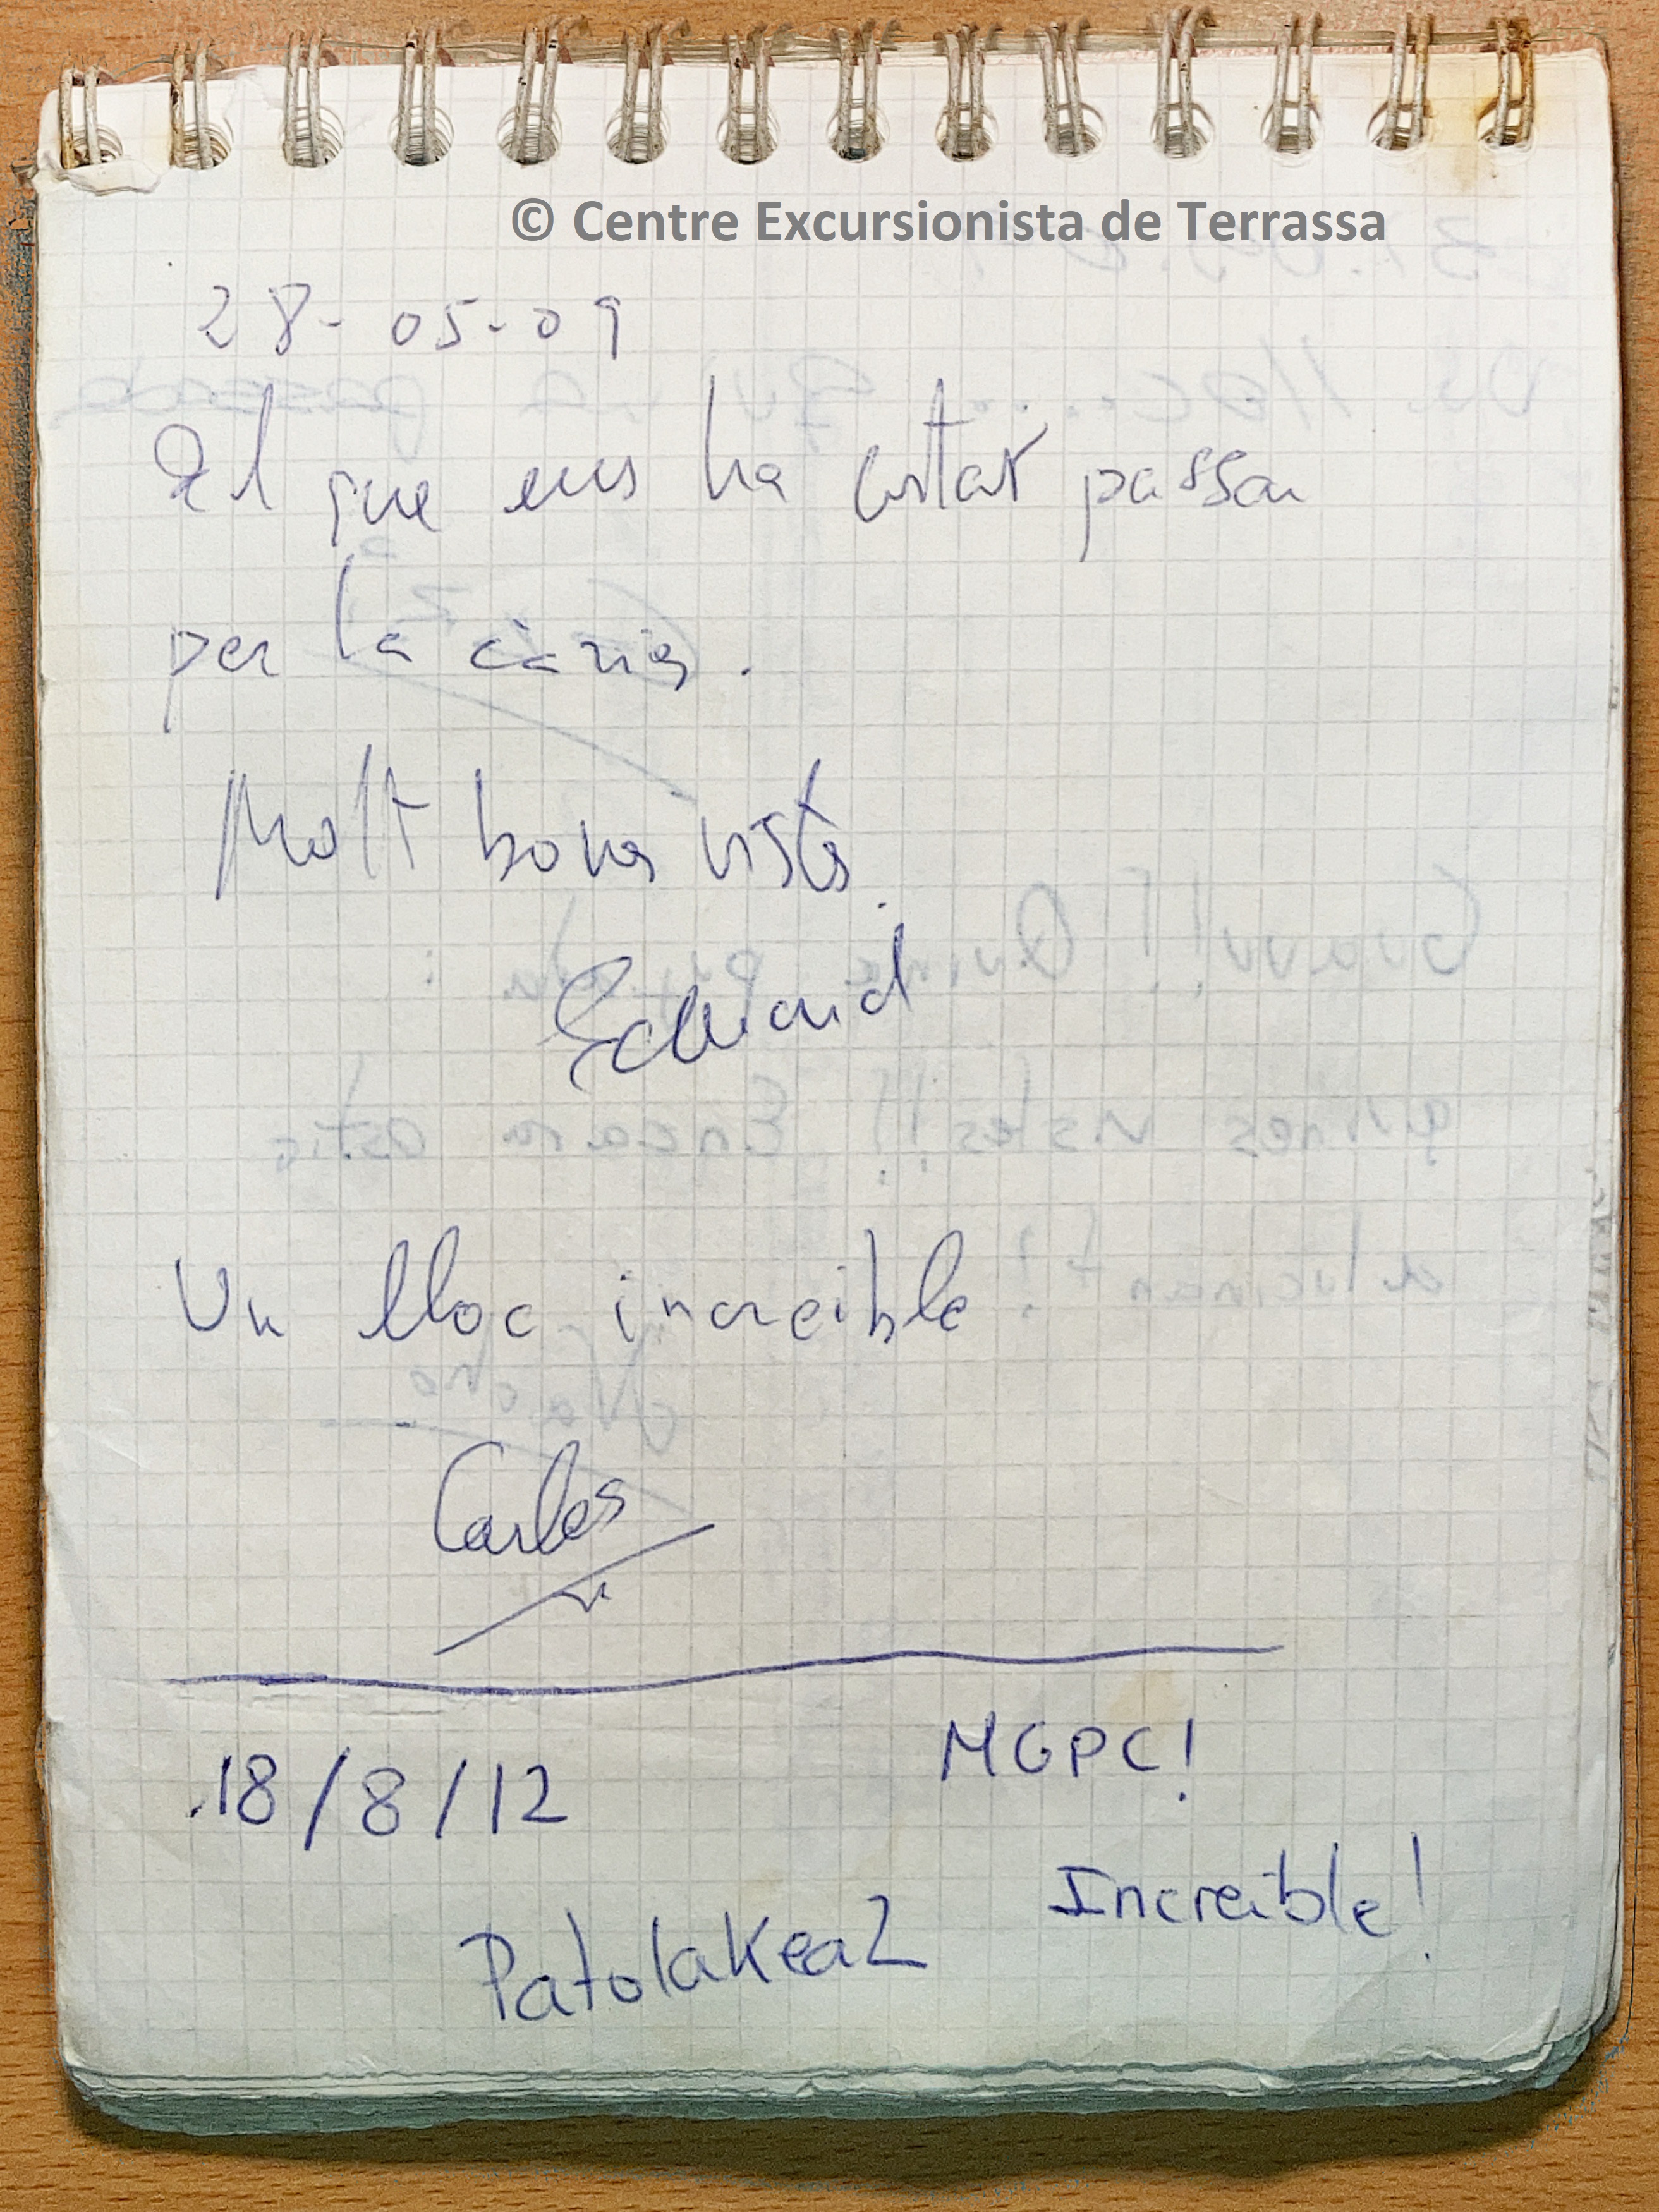 © Centre Excursionista de Terrassa
28-05-09
El que ens ha costat passar
per la
Molt bona vista.
Eduard
Un lloc increible
Carles
18/8/12
MGPC!
Increible!